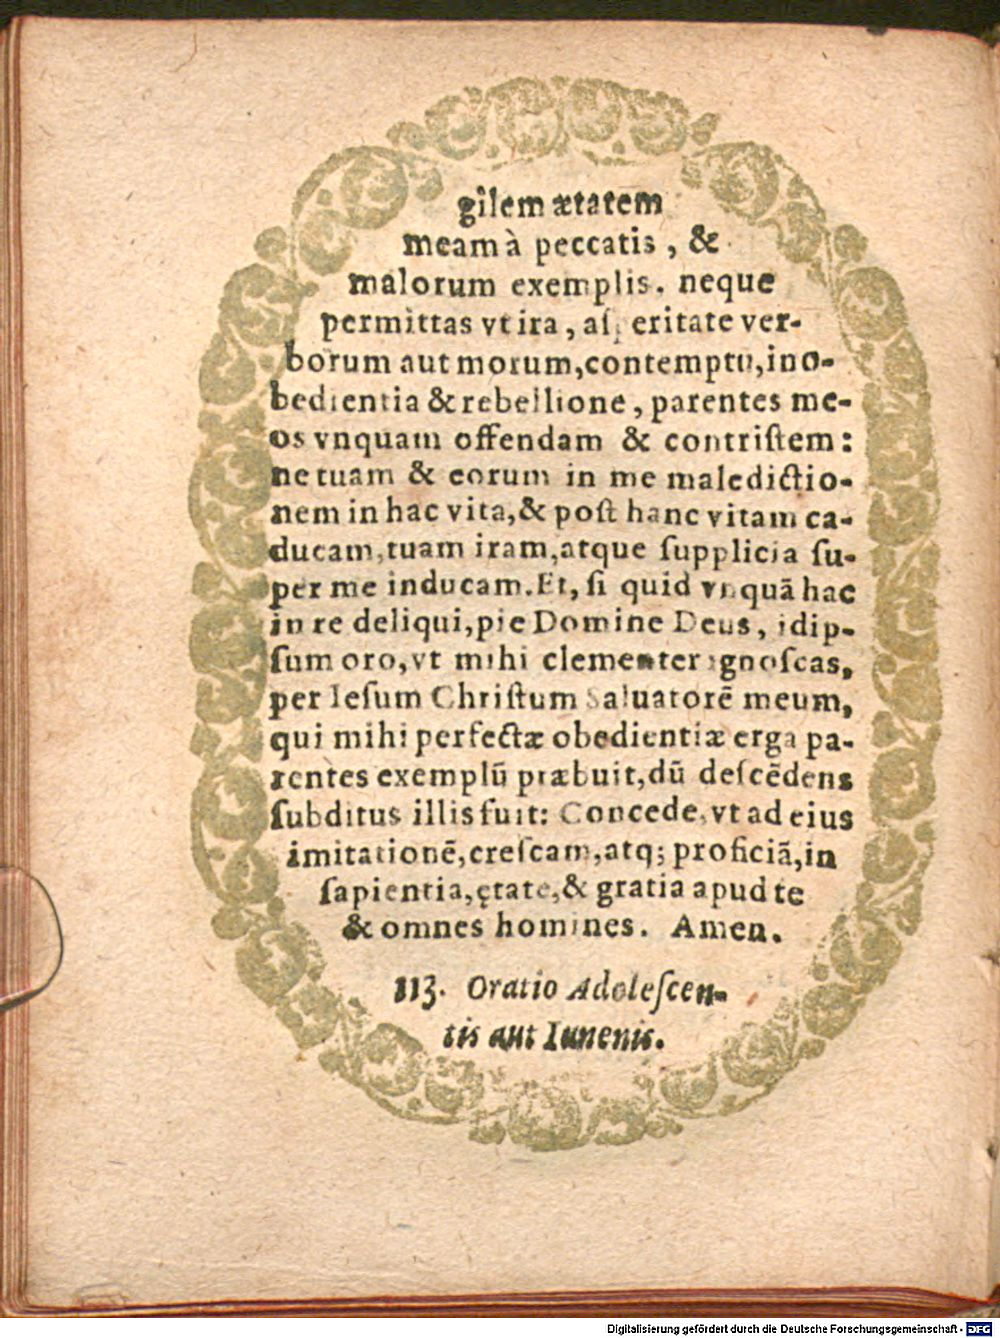 gilem ætatem
meam à peccatis, &
malorum exemplis. neque
permittas vt ira, asperitate ver-
borum aut morum, contemptu, ino-
bedientia & rebellione, parentes me-
os vnquam offendam & contristem:
ne tuam & eorum in me maledictio-
nem in hac vita, & post hanc vitam ca-
ducam, tuam iram, atque supplicia su-
per me inducam. Et, si quid vnquā hac
in re deliqui, pie Domine Deus, idip-
sum oro, vt mihi clementer ignoscas,
per Iesum Christum Saluatorē meum,
qui mihi perfectæ obedientiæ erga pa-
rentes exemplū præbuit, dū descēdens
subditus illis fuit: Concede, vt ad eius
imitationē, crescam, atq; proficiā, in
sapientia, ętate, & gratia apud te
& omnes homines. Amen.
113. Oratio Adolescen-
tis aut Iuuenis.
Digitalisierung gefördert durch die Deutsche Forschungsgemeinschaft - DFG